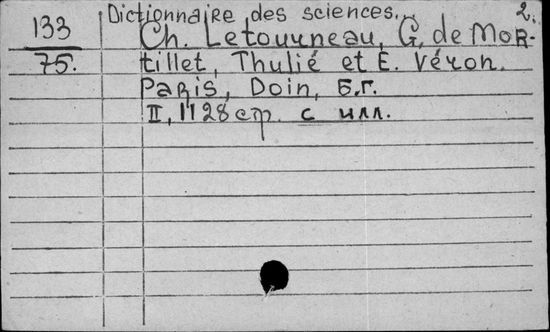 2.
Dictionnaire des sciences...
133 Ch. Letourneau, G. de Mor-
75. tillet, Thulié et E. Véron.
Paris, Doin, б.г.
II, 1128 стр. с илл.